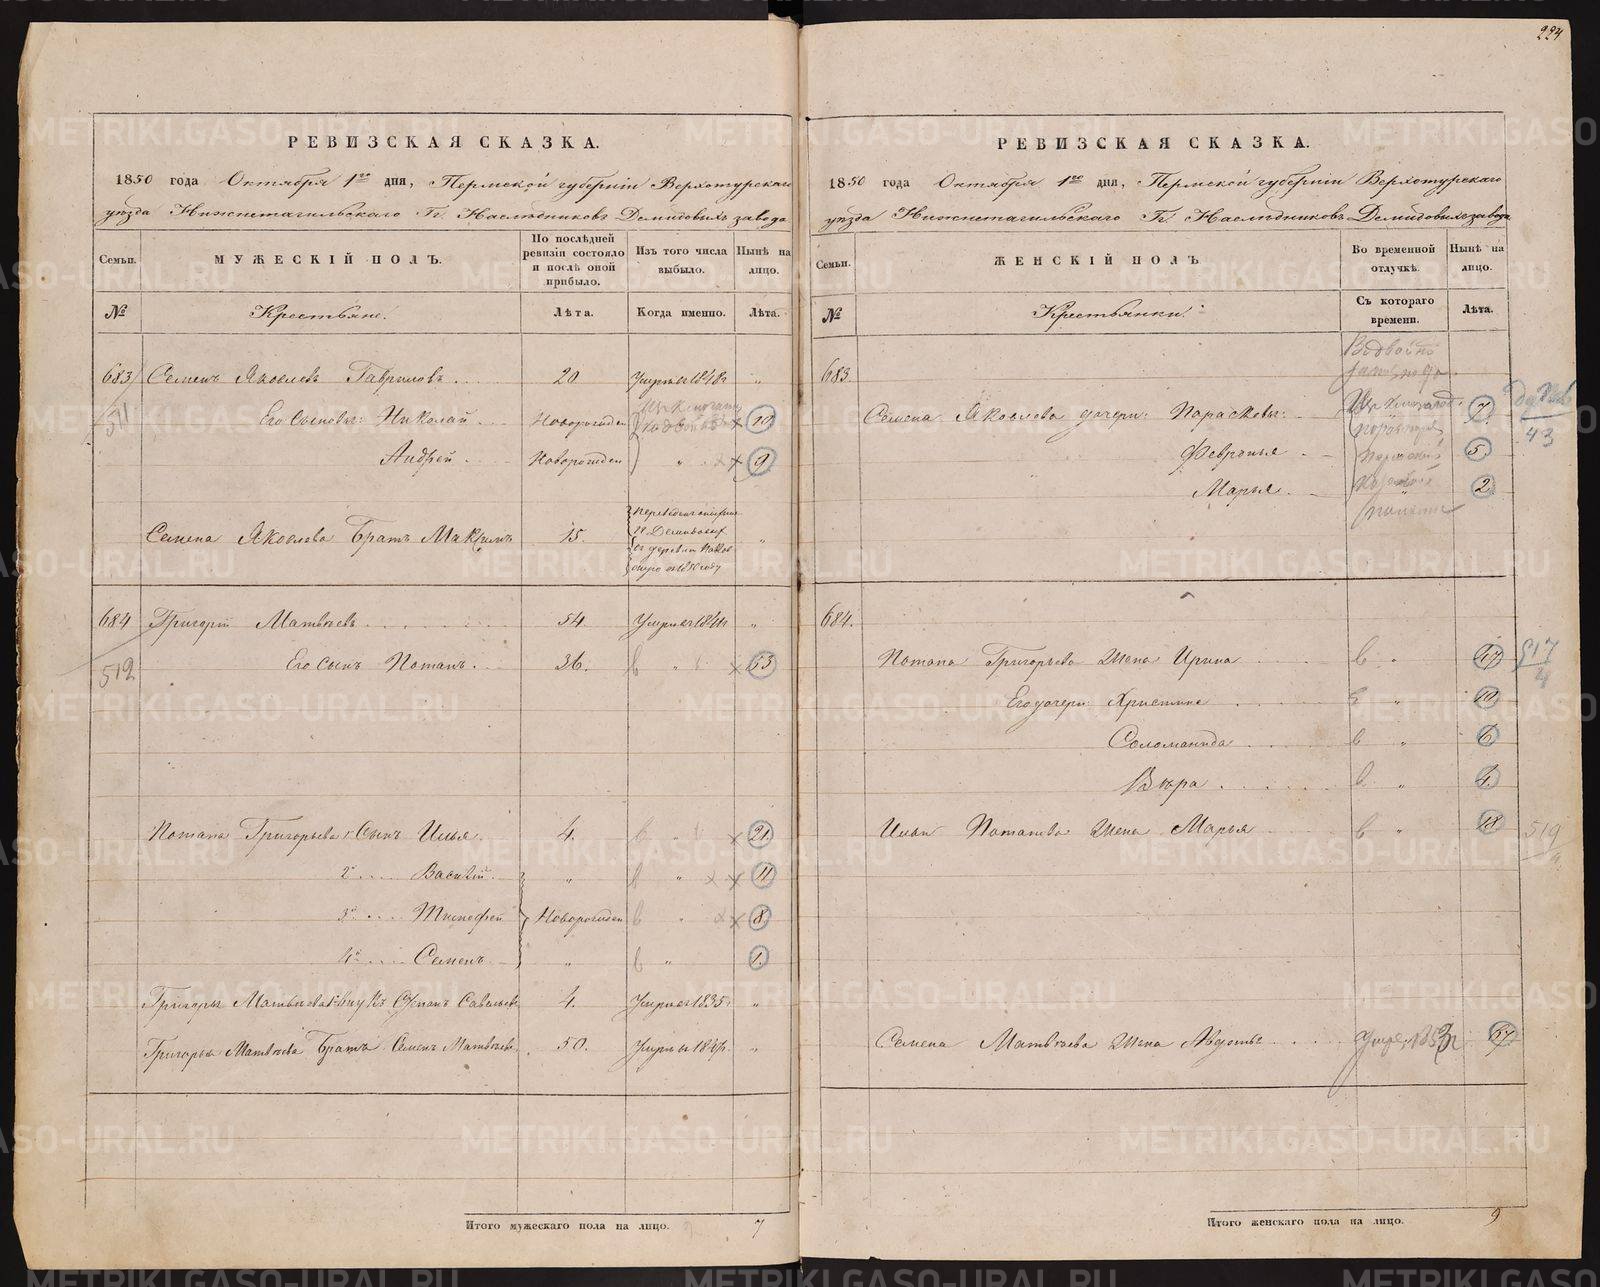 224
РЕВИЗСКАЯ СКАЗКА.
1850 года Октября 1го дня, Пермской губерніи Верхотурскаго
уѣзда Нижнетагильскаго Гг. Наслѣдниковъ Демидовыхъ завода
Семьи.
МУЖЕСКІЙ ПОЛЪ.
По послѣдней ревизіи состояло и послѣ оной прибыло.
Изъ того числа выбыло.
Нынѣ на лицо.
№
Крестьяне.
Лѣта.
Когда именно.
Лѣта.
683 Семенъ Яковлевъ Гавриловъ 20 Умре 1848г „
511 Его Сыновья: Николай Новорожден 10
Андрей Новорожден „ 9
Семена Яковлева Братъ Максимъ 15 „
684 Григорій Матвѣевъ 54 Умре 1841г „
512 Его сынъ Потапъ 36. в „ 53
Потапа Григорьева 1 Сынъ Илья 4. в „ 21
2й Василій „ в „ 11
3й Тимофей Новорожден в „ 8
4й Семенъ „ в „ 1.
Григорья Матвѣева внукъ Степанъ Савельевъ 4. Умре 1835г „
Григорья Матвѣева Братъ Семенъ Матвѣевъ 50. „
Итого мужескаго пола на лицо. 7
РЕВИЗСКАЯ СКАЗКА.
1850 года Октября 1го дня, Пермской губерніи Верхотурскаго
уѣзда Нижнетагильскаго Гг. Наслѣдниковъ Демидовыхъ завода
Семьи.
ЖЕНСКІЙ ПОЛЪ
Во временной отлучкѣ.
Нынѣ на лицо.
№
Крестьянки.
Съ котораго времени.
Лѣта.
683.
Семена Яковлева дочери: Парасковья 7.
Февронья 5.
Марья 2
43
684.
Потапа Григорьева Жена Ирина в „ 47 517
Его дочери: Христина в „ 10
Соломанида в „ 6
Вѣра в „ 4.
Ильи Потапова Жена Марья в „ 18 519
Семена Матвѣева Жена Авдотья 67
Итого женскаго пола на лицо. 9
METRIKI.GASO-URAL.RU